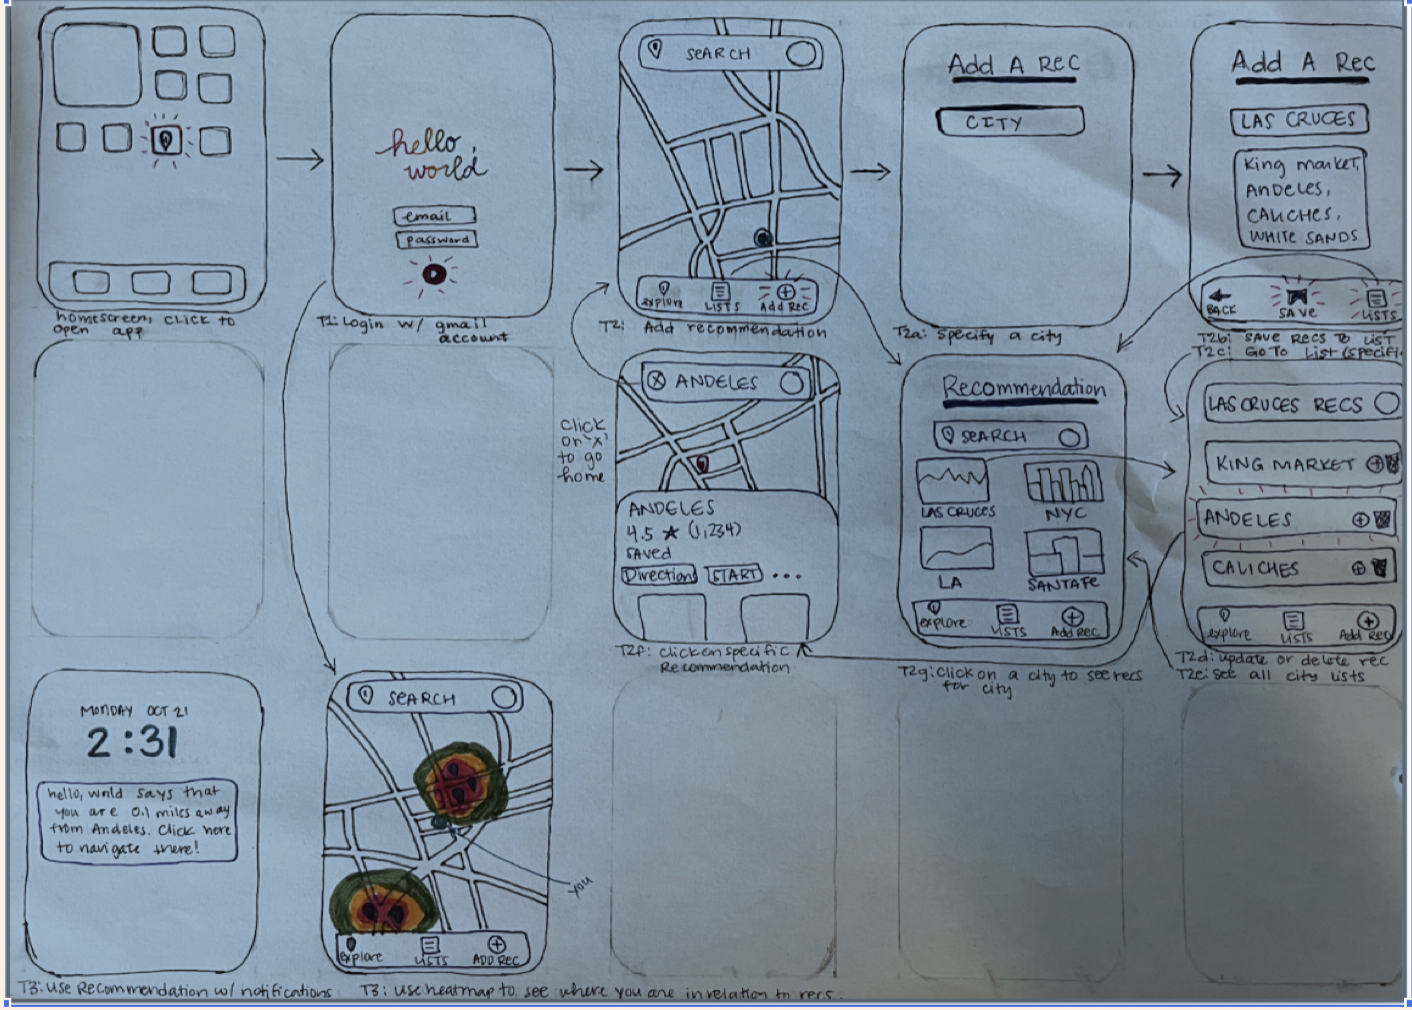 homescreen, click to
open app
hello,
world
email
password
T1: Login w/ gmail
account
SEARCH
explore
LISTS
Add Rec
T2: Add recommendation
Add A Rec
CITY
T2a: Specify a city
Add A Rec
LAS CRUCES
King market,
ANDELES,
CALICHES,
WHITE SANDS
BACK
SAVE
LISTS
T2b: SAVE RECS TO LIST
T2c: GO TO List (specifi
click
on 'x'
to go
home
ANDELES
ANDELES
4.5 ★ (1,234)
saved
Directions
START
...
T2f: click on specific
Recommendation
Recommendation
SEARCH
LAS CRUCES
NYC
LA
SANTA FE
explore
LISTS
Add Rec
T2g: Click on a city to see recs
for city
LAS CRUCES RECS
KING MARKET
ANDELES
CALICHES
explore
LISTS
Add Rec
T2d: update or delete rec
T2e: see all city lists
MONDAY OCT 21
2:31
hello, world says that
you are 0.1 miles away
from Andeles. Click here
to navigate there!
T3: Use Recommendation w/ notifications
SEARCH
you
explore
LISTS
ADD REC
T3: Use heatmap to see where you are in relation to recs.